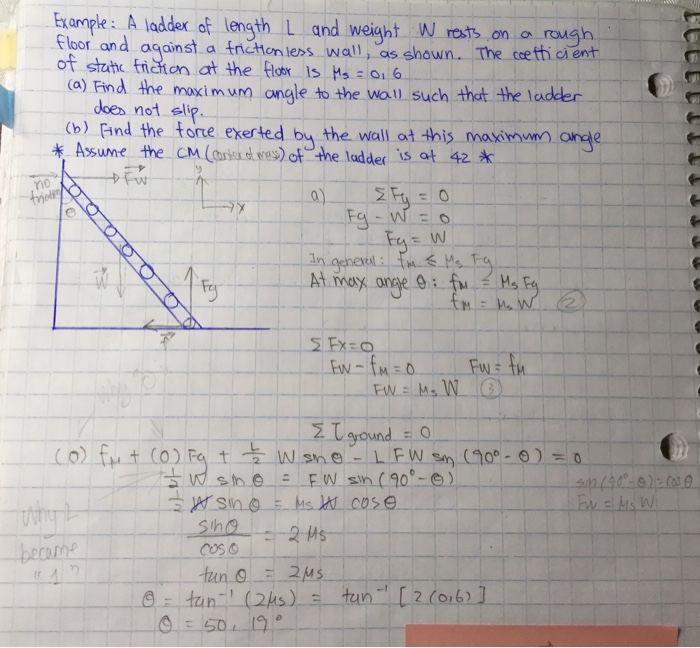 Example: A ladder of length L and weight W rests on a rough
floor and against a frictionless wall, as shown. The coefficient
of static friction at the floor is μs = 0,6
(a) Find the maximum angle to the wall such that the ladder
does not slip.
(b) Find the force exerted by the wall at this maximum angle
* Assume the CM ( of mass) of the ladder is at *
no
friction
Fw
y
x
θ
W
Fg
f
a) ΣFy = 0
Fg - W = 0
Fg = W
In general: fM ≤ μs Fg
At max ange θ: fM = μs Fg
fM = μs W ②
ΣFx = 0
FW - fM = 0 FW = fM
FW = μs W ③
Why "0"
Στ ground = 0
(0) fM + (0) Fg + L/2 W sin θ - L FW sin (90° - θ) = 0
1/2 W sin θ = FW sin (90° - θ)
sin (90° - θ) = cos θ
1/2 W sin θ = μs W cos θ
FW = μs W
Why L
became
"1"
sin θ / cos θ = 2 μs
tan θ = 2μs
θ = tan⁻¹ (2μs) = tan⁻¹ [2(0,6)]
θ = 50,19°